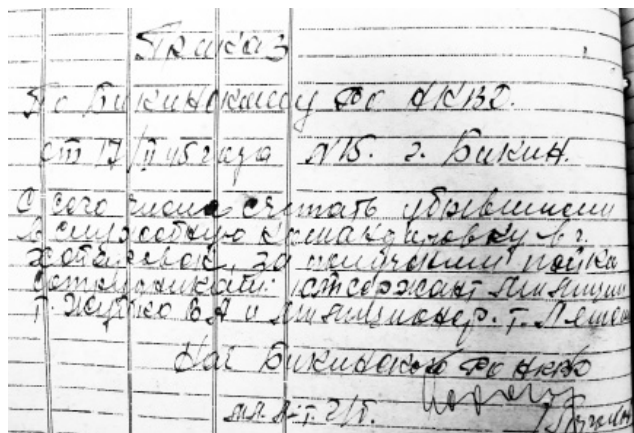 Приказ
По Бикинскому РО НКВД.
от 17/II 45 года №15. г. Бикин.
С сего числа считать убывшими
в служебную командировку в г.
Хабаровск, за получкой пайка
сотрудникам: ст сержант милиции
т. и милиционер. т.
Нач Бикинского РО НКВД
мл. л-т. г/б.